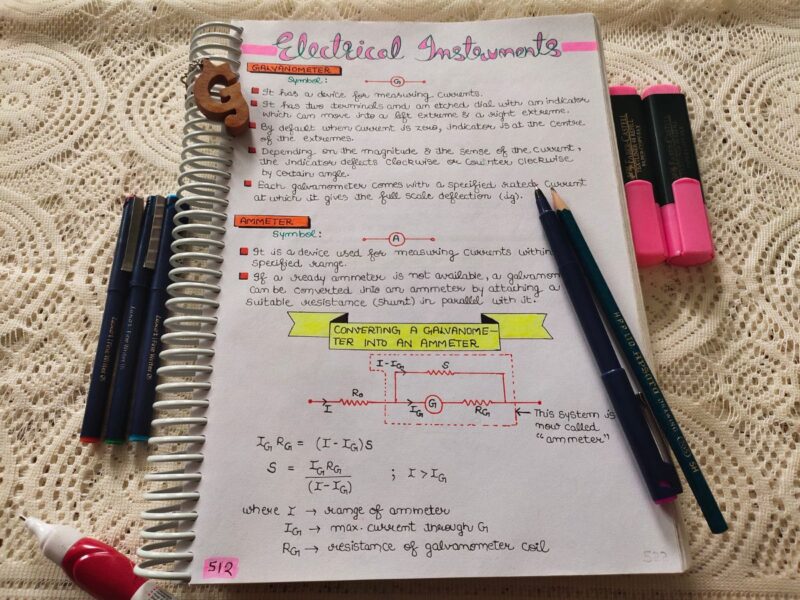 Electrical Instruments
GALVANOMETER
Symbol:
G
It has a device for measuring currents.
It has two terminals and an etched dial with an indicator
which can move into a left extreme & a right extreme.
By default when current is zero, indicator is at the centre
of the extremes.
Depending on the magnitude & the sense of the current,
the indicator deflects clockwise or counter clockwise
by certain angle.
Each galvanometer comes with a specified rated current
at which it gives the full scale deflection (ig).
AMMETER
Symbol:
A
It is a device used for measuring currents within
specified range.
If a ready ammeter is not available, a galvanom
can be converted into an ammeter by attaching a
suitable resistance (shunt) in parallel with it.
CONVERTING A GALVANOME-
TER INTO AN AMMETER
I-IG S
R0
I IG G RG
This system is
now called
"ammeter"
IG RG = (I-IG)S
S = IG RG / (I-IG) ; I > IG
where I → range of ammeter
IG → max. current through G
RG → resistance of galvanometer coil
512